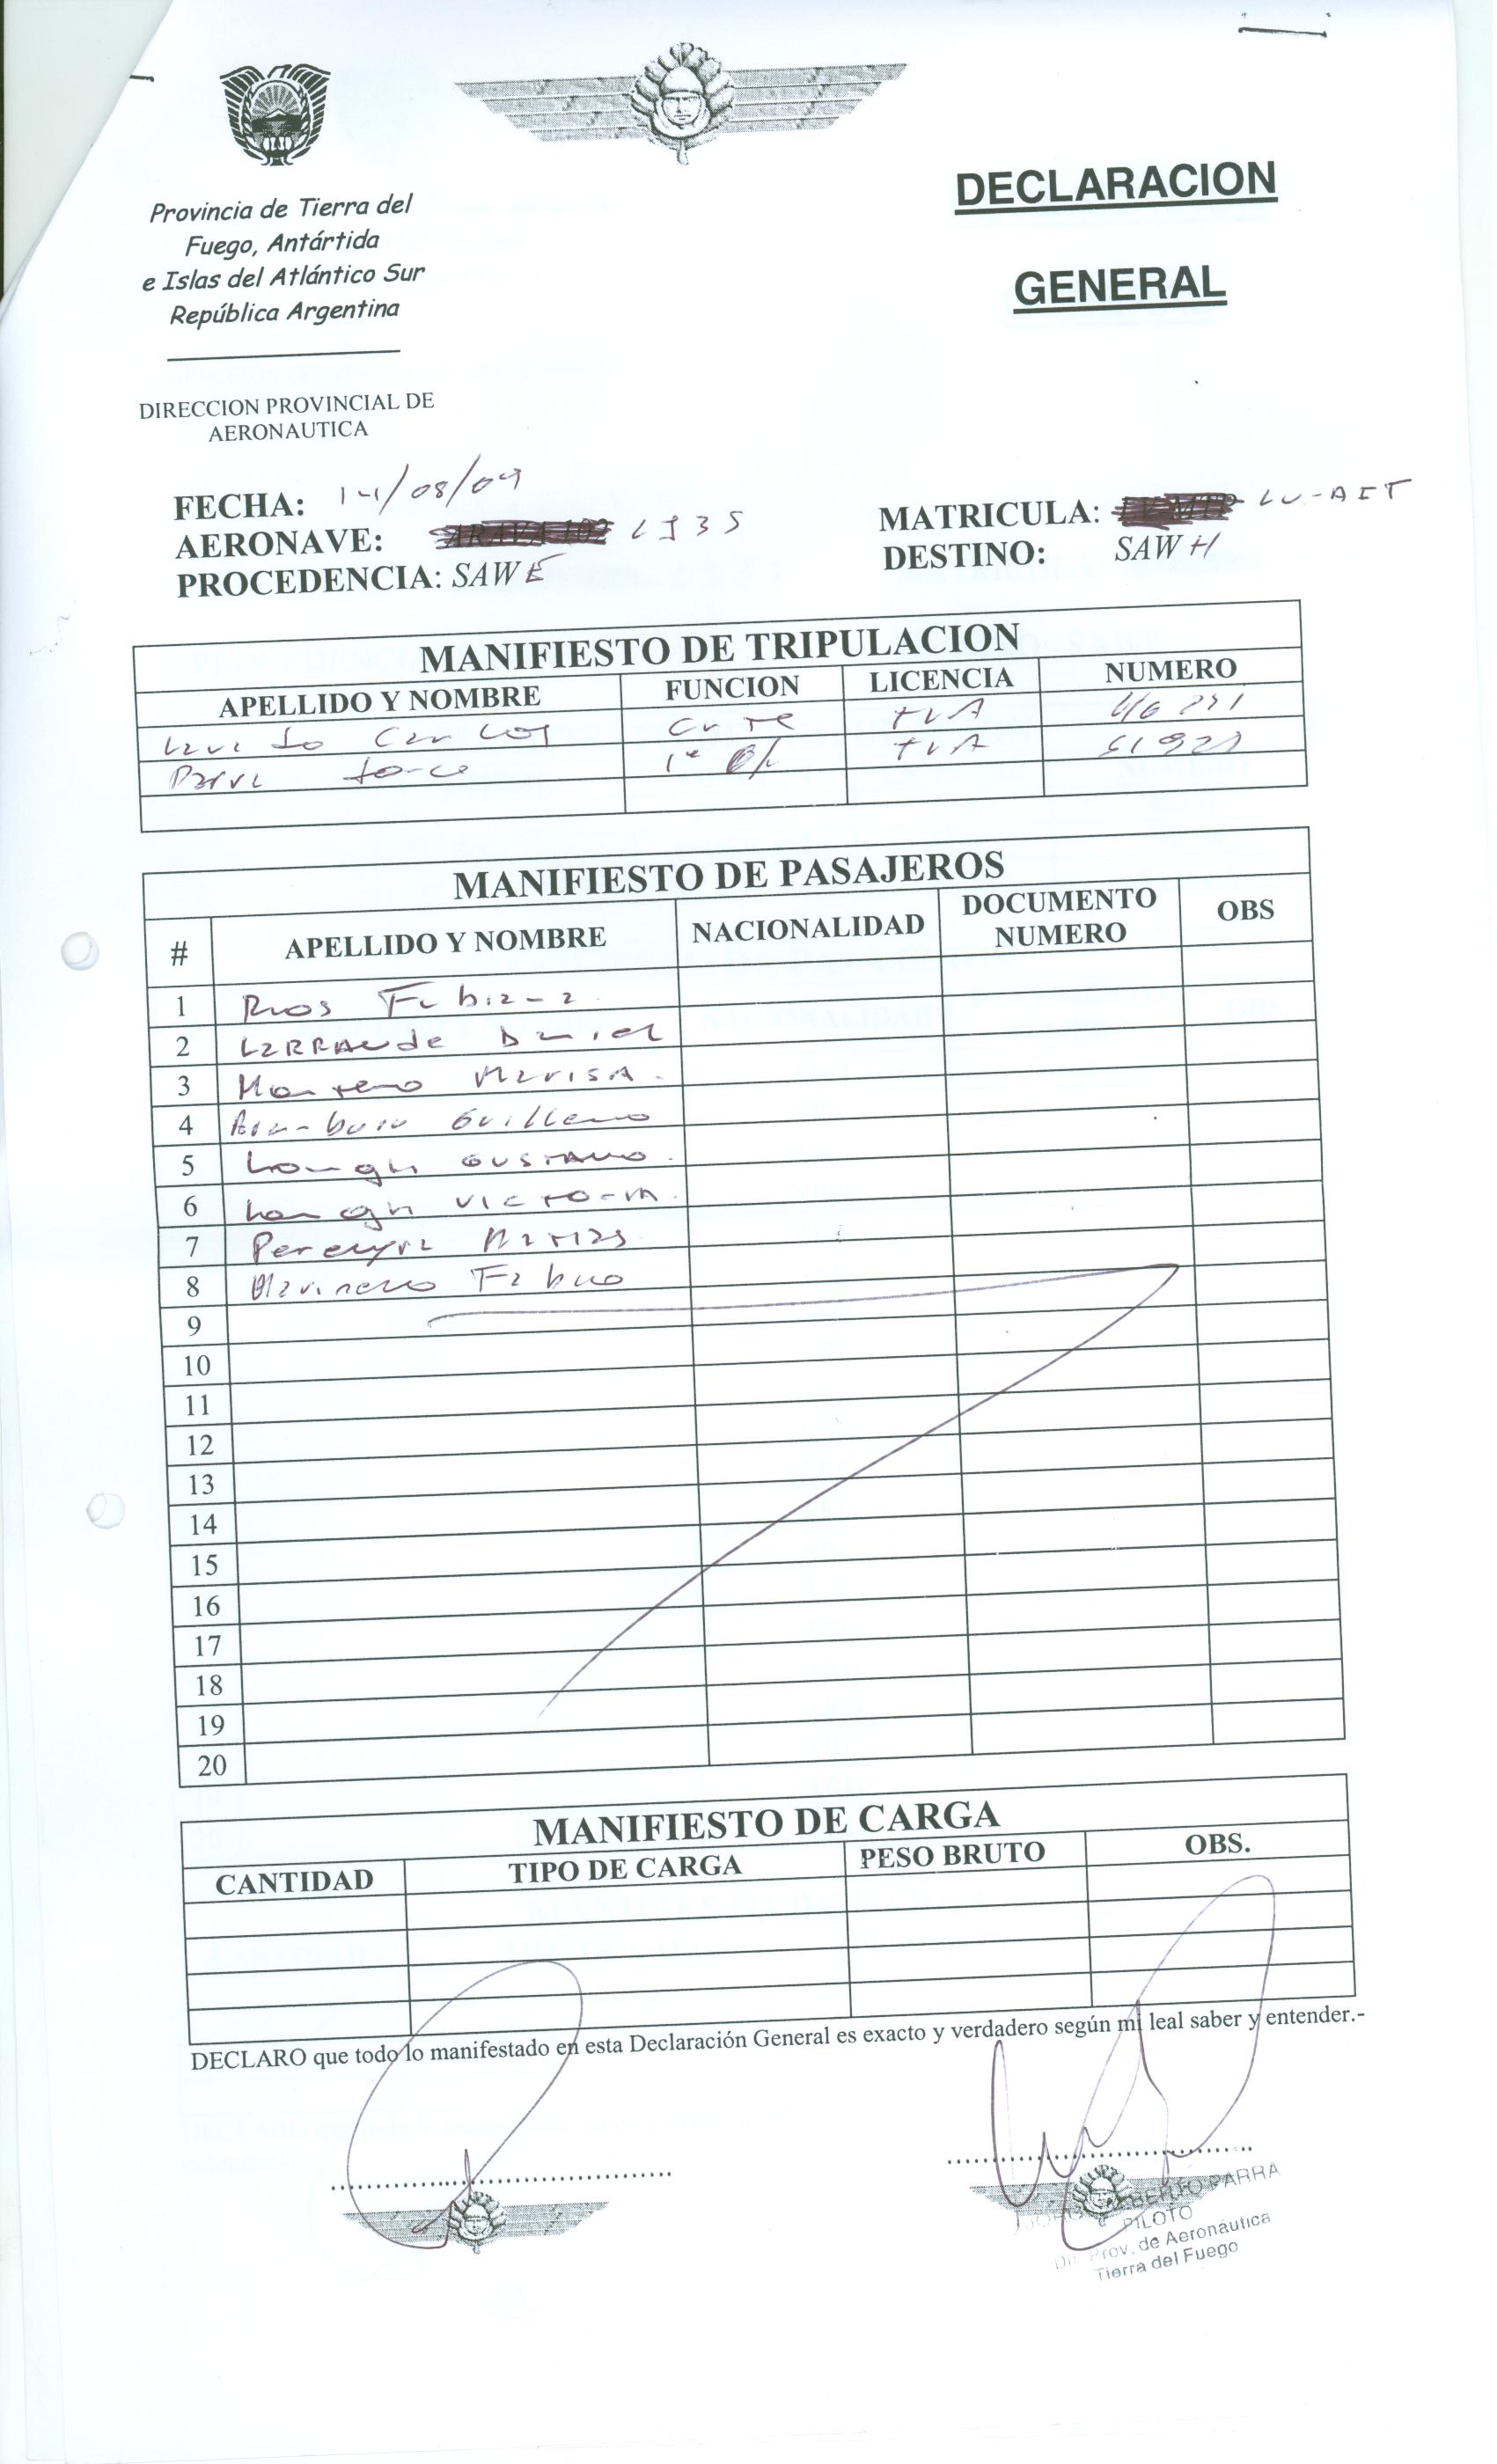 Provincia de Tierra del
Fuego, Antártida
e Islas del Atlántico Sur
República Argentina
DECLARACION
GENERAL
DIRECCION PROVINCIAL DE
AERONAUTICA
FECHA: 14/08/09
AERONAVE: LJ35
PROCEDENCIA: SAWE
MATRICULA: LV-AIT
DESTINO: SAWH
MANIFIESTO DE TRIPULACION
APELLIDO Y NOMBRE FUNCION LICENCIA NUMERO
Carlos TLA
TLA
MANIFIESTO DE PASAJEROS
# APELLIDO Y NOMBRE NACIONALIDAD DOCUMENTO NUMERO OBS
1 Rios Fabiana
2 LARRAUDE Daniel
3 Montero MARISA
4 Guillermo
5 GUSTAVO
6 VICTORIA
7 Pereyra MATIAS
8 Marinero Fabio
9
10
11
12
13
14
15
16
17
18
19
20
MANIFIESTO DE CARGA
CANTIDAD TIPO DE CARGA PESO BRUTO OBS.
DECLARO que todo lo manifestado en esta Declaración General es exacto y verdadero según mi leal saber y entender.-
PARRA
PILOTO
Prov. de Aeronáutica
Tierra del Fuego